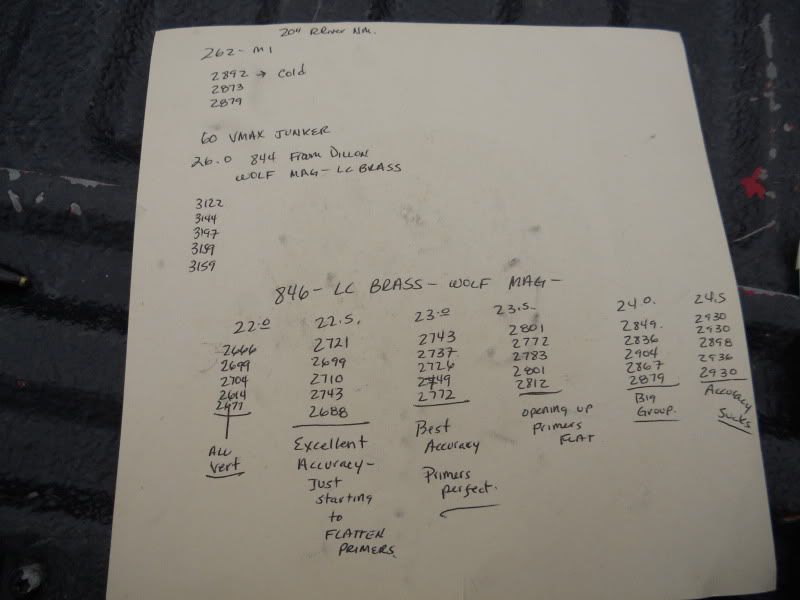 204 RRiver NM.
262- M1
2892 → Cold
2873
2879
60 VMAX JUNKER
26.0 844 From DILLON
WOLF MAG- LC BRASS
3122
3144
3197
3159
3159
846- LC BRASS- WOLF MAG-
22.0 22.5. 23.0 23.5- 24.0. 24.5
2666 2721 2743 2801 2849. 2930
2699 2699 2737 2772 2836 2930
2704 2710 2726 2783 2904 2898
2614 2743 2749 2801 2867 2936
2677 2688 2772 2812 2879 2930
ALL
Vert
Excellent
Accuracy-
Just
starting
to
FLATTEN
PRIMERS.
Best
Accuracy
Primers
perfect.
opening up
Primers
FLAT
BIG
Group.
Accuracy
Sucks